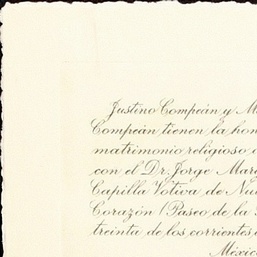 Justino Compeán y M
Compeán tienen la hon
matrimonio religioso
con el Dr. Jorge Mar
Capilla Votiva de Nu
Corazón (Paseo de la
treinta de los corrientes
México